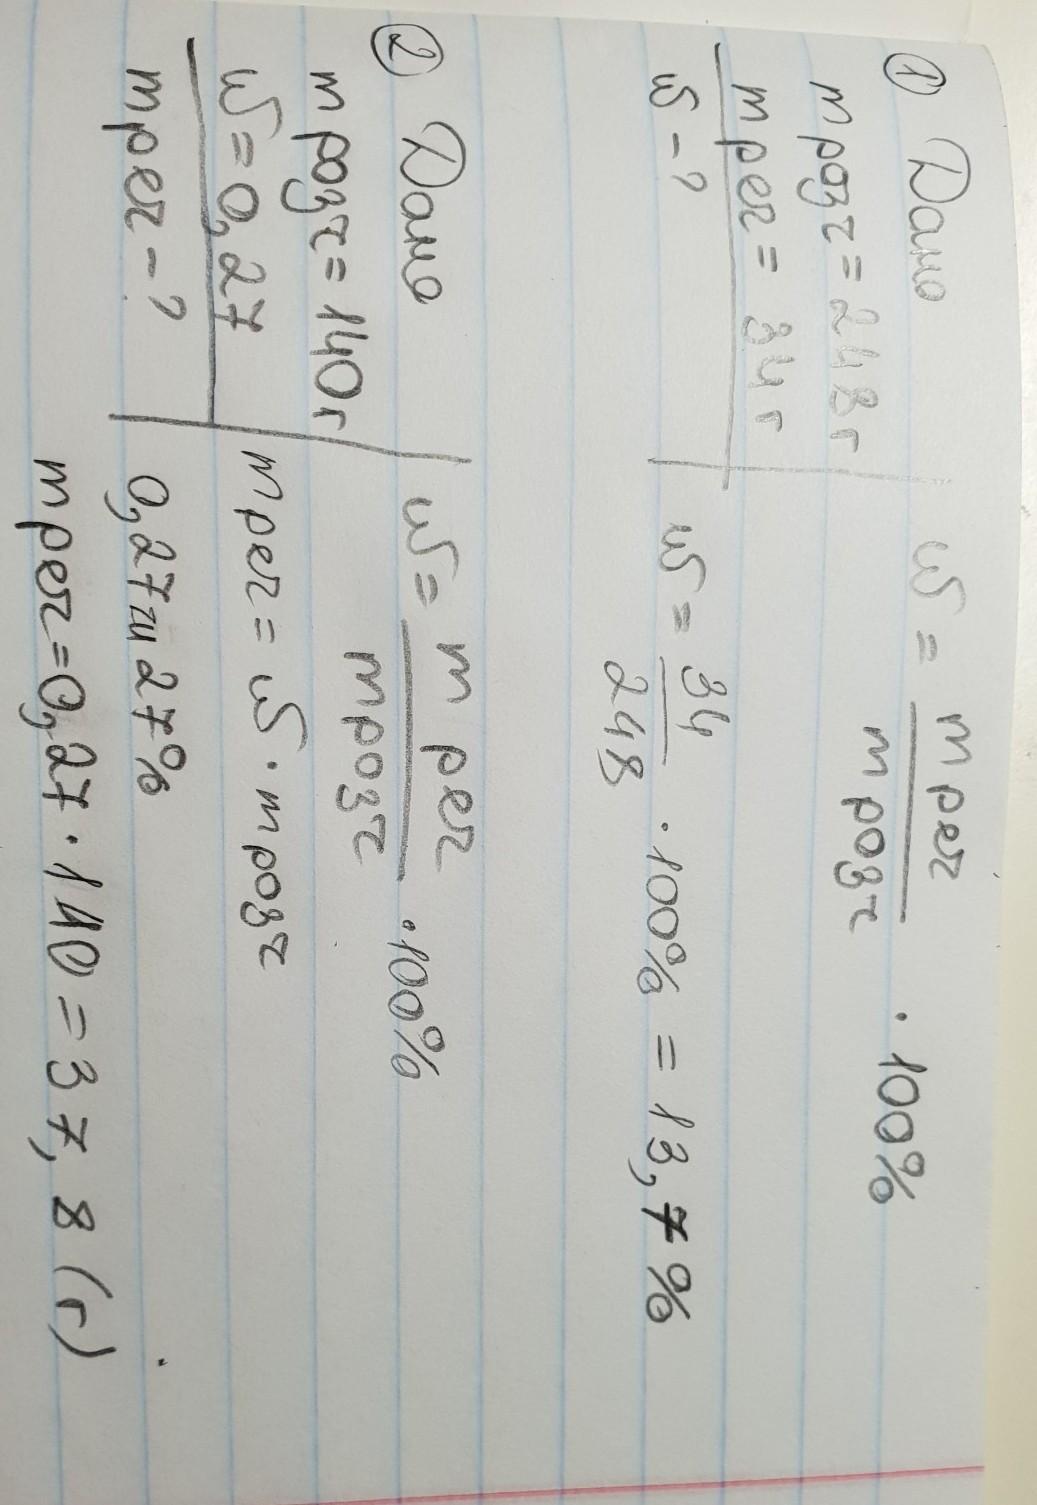 ① Дано
m розч = 248 г
m реч = 34 г
w - ?
w = m реч / m розч · 100%
w = 34 / 248 · 100% = 13,7%
② Дано
m розч = 140 г
w = 0,27
m реч - ?
w = m реч / m розч · 100%
m реч = w · m розч
27%
m реч = 0,27 · 140 = 37,8 (г)